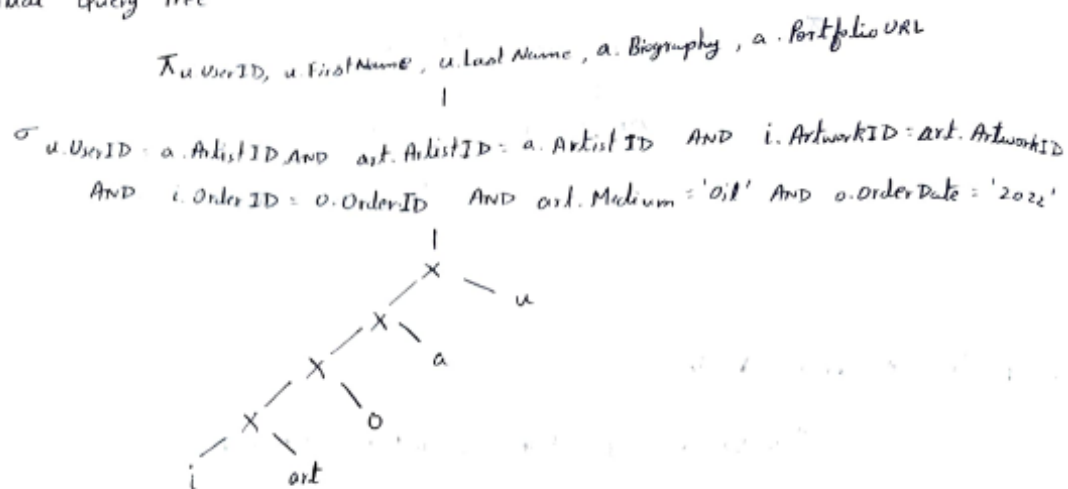 Query Tree
π u.UserID, u.FirstName, u.Last Name, a.Biography, a.PortfolioURL
σ u.UserID = a.ArtistID AND art.ArtistID = a.ArtistID AND i.ArtworkID = art.ArtworkID
AND i.OrderID = o.OrderID AND art.Medium = 'Oil' AND o.OrderDate = '2022'
X
u
X
a
X
O
X
i art